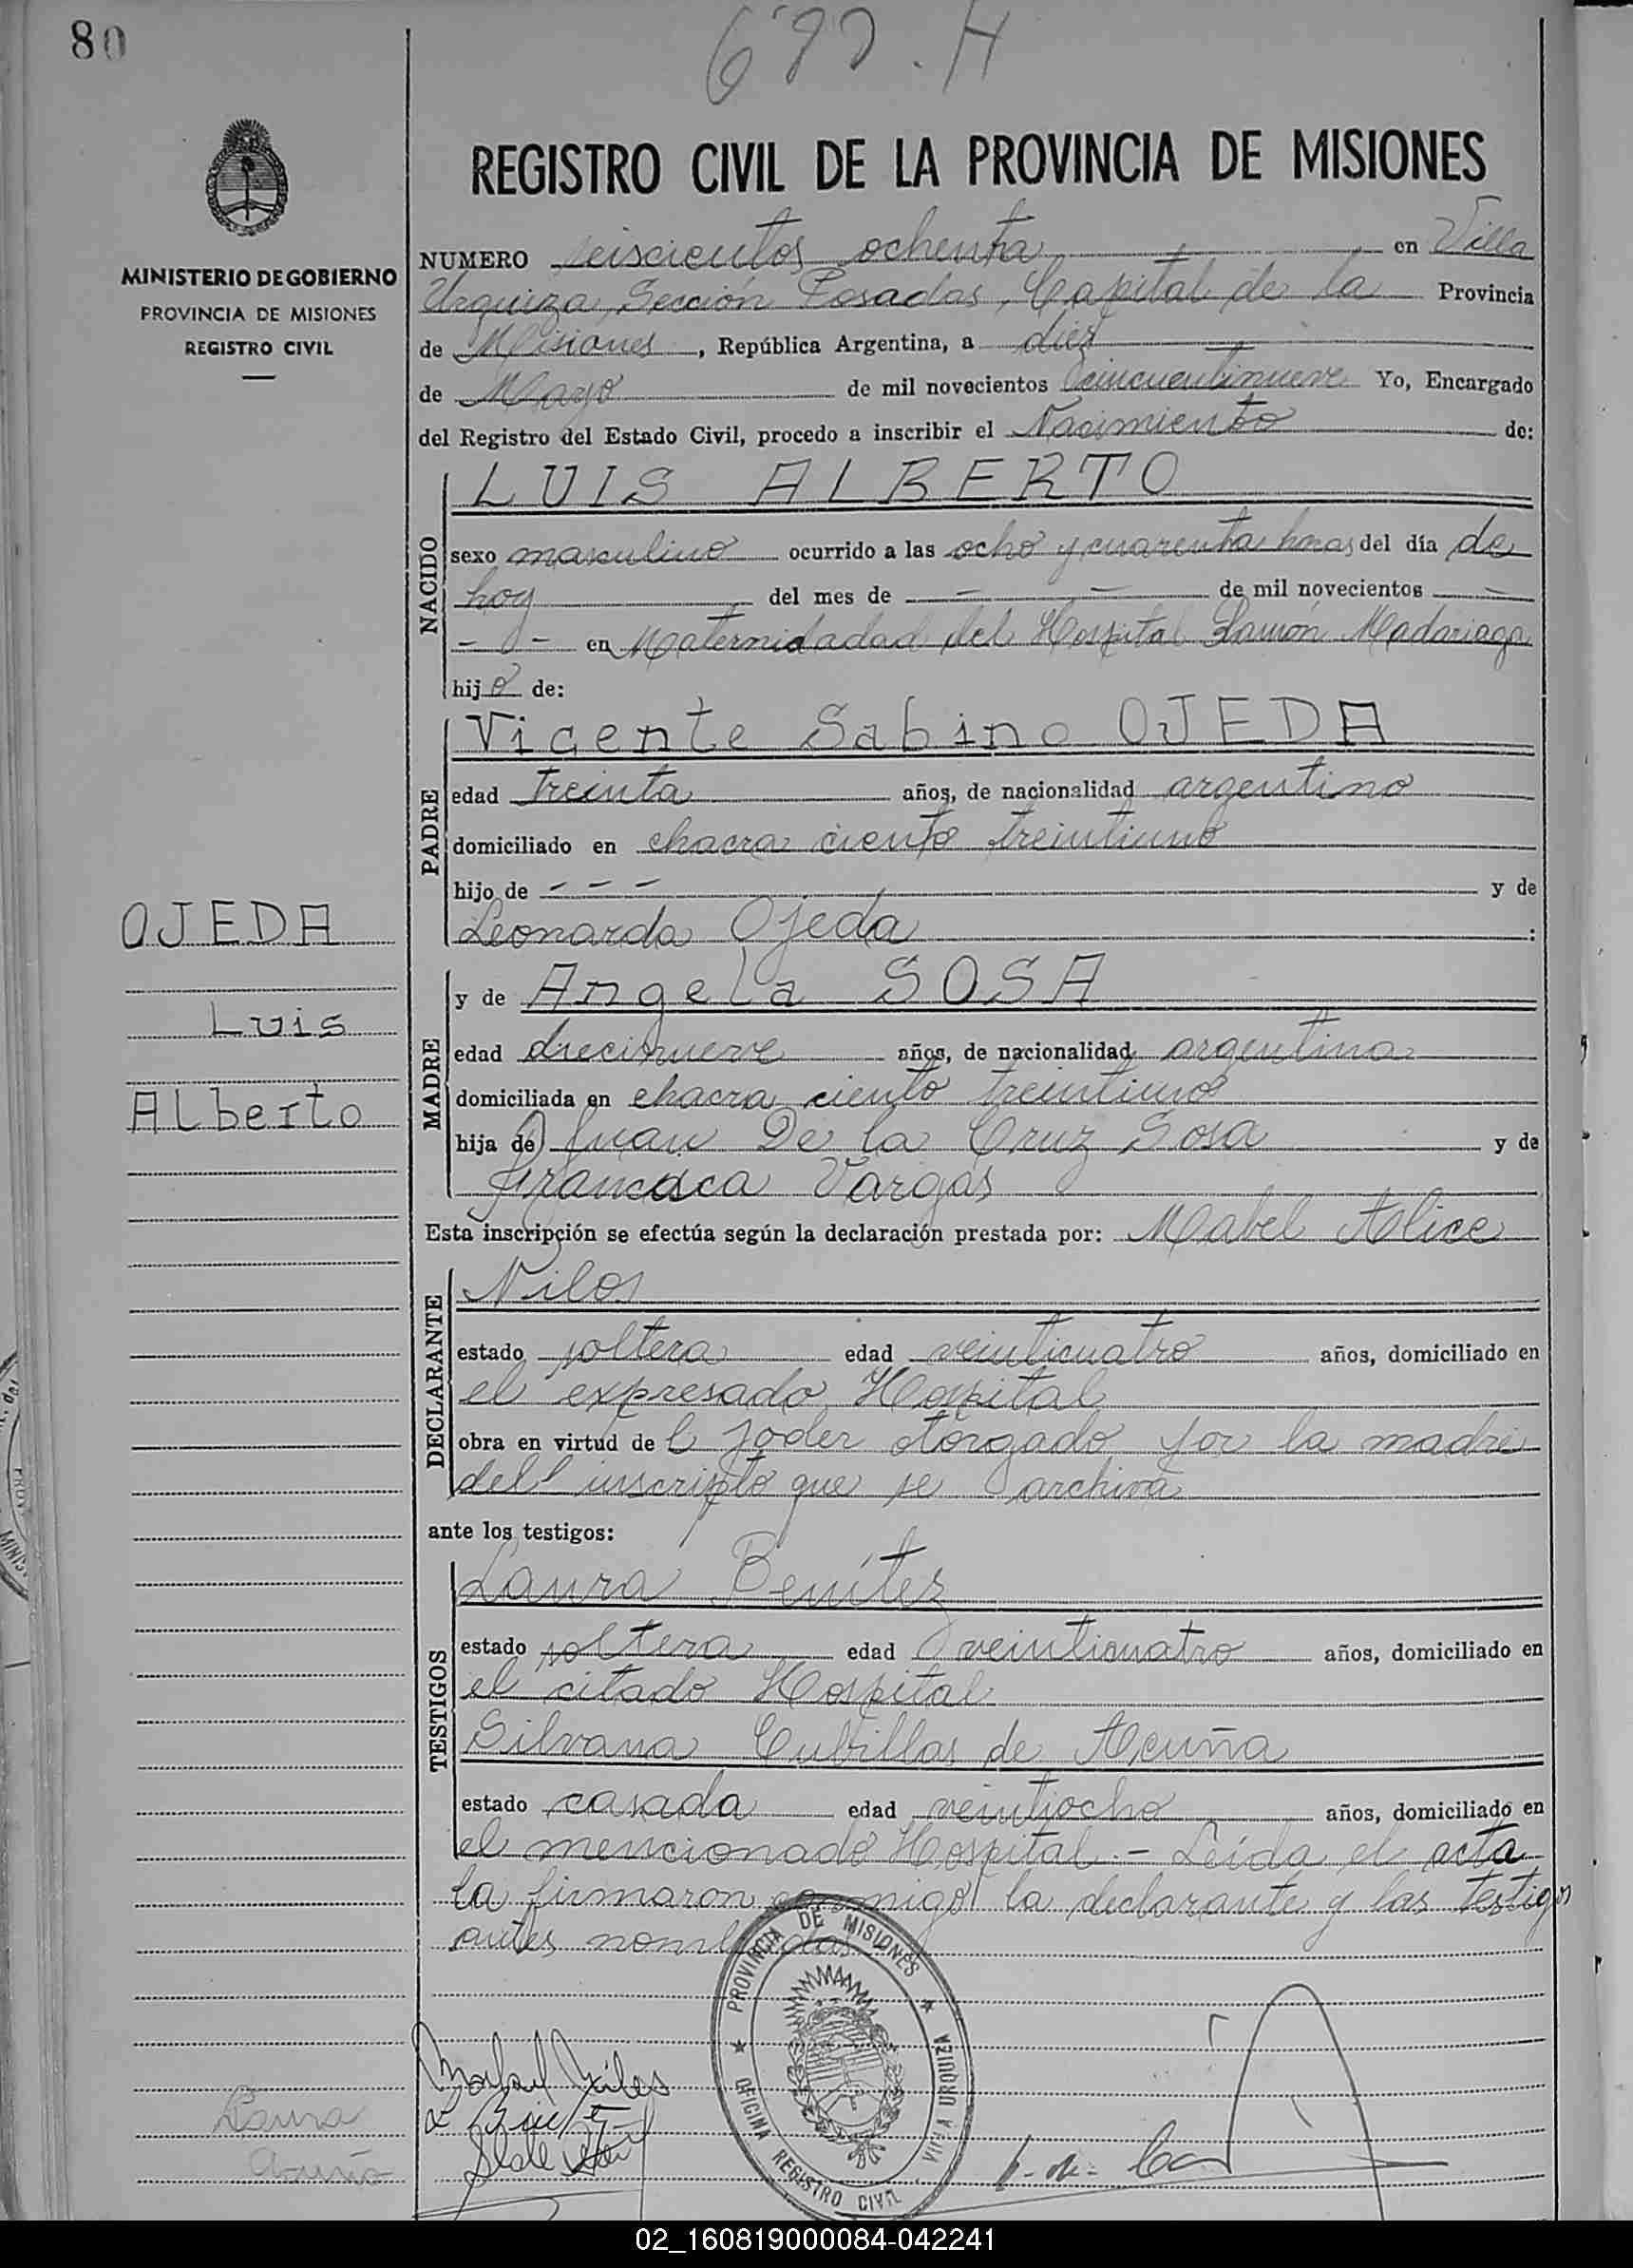 80
REGISTRO CIVIL DE LA PROVINCIA DE MISIONES
MINISTERIO DE GOBIERNO
PROVINCIA DE MISIONES
REGISTRO CIVIL
NUMERO seiscientos ochenta en Villa
Urquiza, Sección Posadas, Capital de la Provincia
de Misiones, República Argentina, a diez
de Mayo de mil novecientos cincuentinueve Yo, Encargado
del Registro del Estado Civil, procedo a inscribir el Nacimiento de:
NACIDO
LUIS ALBERTO
sexo masculino ocurrido a las ocho y cuarenta horas del día de
hoy del mes de - - de mil novecientos -
- - en Maternidadad del Hospital Ramón Madariaga
hijo de:
PADRE
Vicente Sabino OJEDA
edad treinta años, de nacionalidad argentino
domiciliado en chacra ciento treintiuno
hijo de - - - y de
Leonarda Ojeda :
OJEDA
Luis
Alberto
MADRE
y de Angela SOSA
edad diecinueve años, de nacionalidad argentina
domiciliada en chacra ciento treintiuno
hija de Juan De la Cruz Sosa y de
Francisca Vargas
Esta inscripción se efectúa según la declaración prestada por: Mabel Alice
DECLARANTE
Nilos
estado soltera edad veinticuatro años, domiciliado en
el expresado Hospital
obra en virtud de l poder otorgado por la madre
del inscripto que se archiva
ante los testigos:
TESTIGOS
Laura Benítez
estado soltera edad veinticuatro años, domiciliado en
el citado Hospital
Silvana Cubillas de Acuña
estado casada edad veintiocho años, domiciliado en
el mencionado Hospital.- Leída el acta
la firmaron conmigo la declarante y las testigos
antes nombradas
PROVINCIA DE MISIONES
OFICINA REGISTRO CIVIL
VILLA URQUIZA
Laura
Acuña
02_160819000084-042241